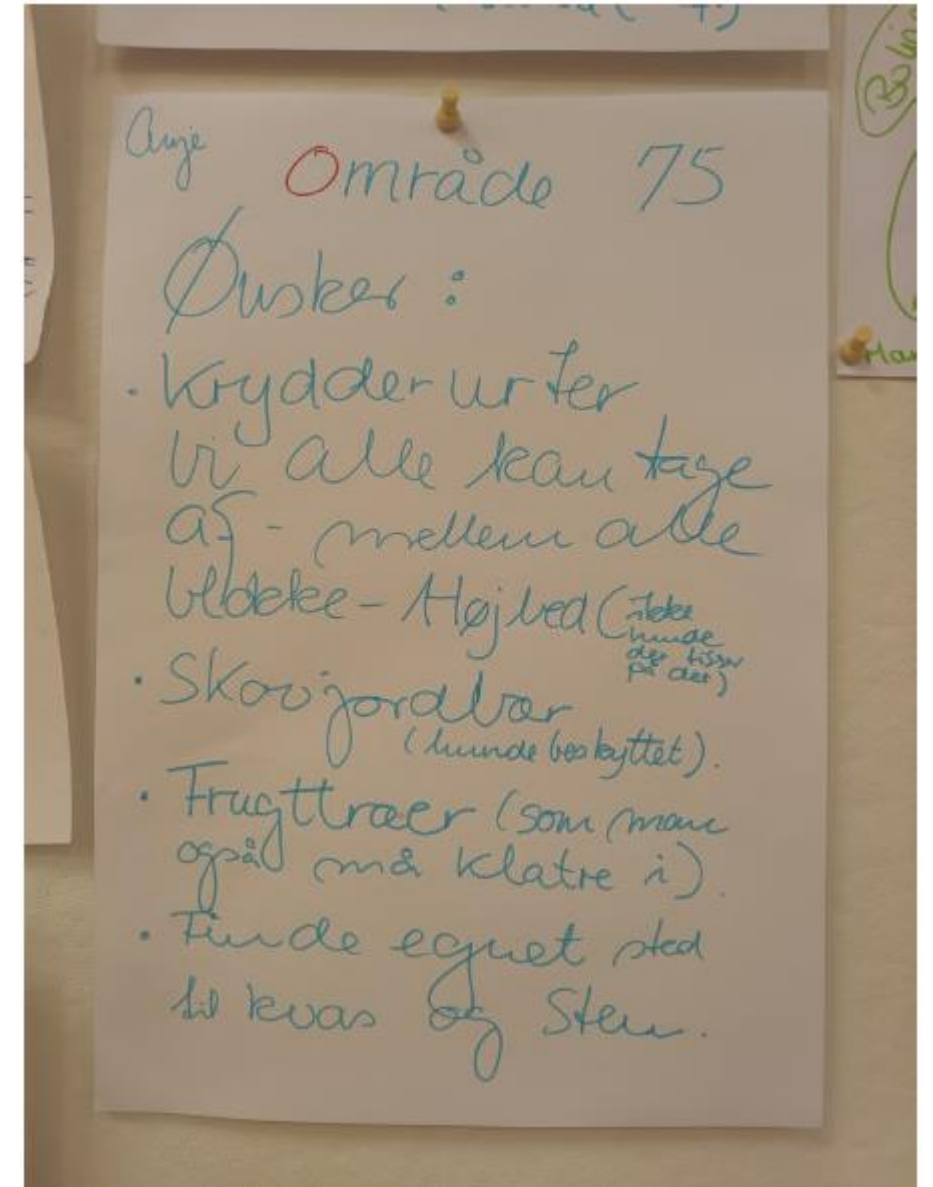 Anje
Område 75
Ønsker :
• Krydderurter
vi alle kan tage
af - mellem alle
blokke - Højbed (ikke
hunde
der tisser
på det)
• Skovjordbær
(hundebeskyttet).
• Frugttræer (som man
også må klatre i).
• Finde egnet sted
til kvas og Sten.